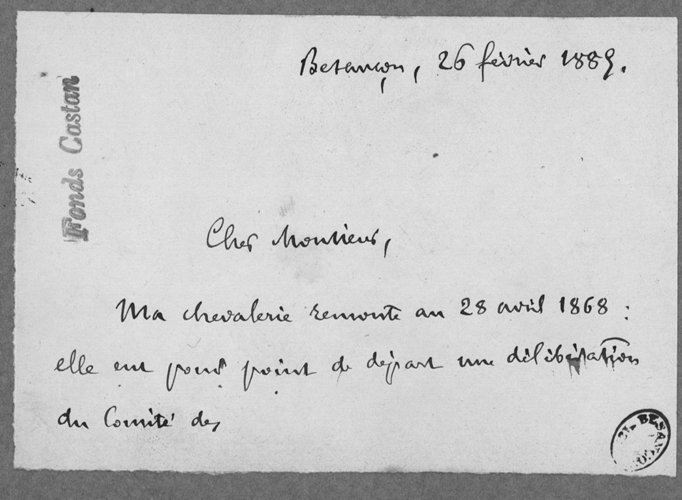 Besançon, 26 février 1889.
Fonds Castan
Cher Monsieur,
Ma chevalerie remonte au 28 avril 1868 :
elle eut pour point de départ une délibération
du Comité des